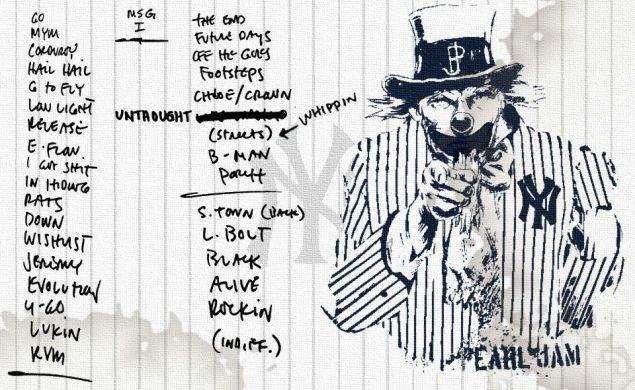 GO
MYM
CORDUROY
HAIL HAIL
G TO FLY
LOW LIGHT
RELEASE
E. FLOW
I GOT SHIT
IN HIDING
RATS
DOWN
WISHLIST
JEREMY
EVOLUTION
U-GO
LUKIN
RVM
MSG
I
THE END
FUTURE DAYS
OFF HE GOES
FOOTSTEPS
CHLOE/CROWN
UNTHOUGHT
(STREETS) ← WHIPPIN
B-MAN
PORCH
S. TOWN (BACK)
L. BOLT
BLACK
ALIVE
ROCKIN
(INDIFF.)
PJ
NY
NY
PEARL JAM